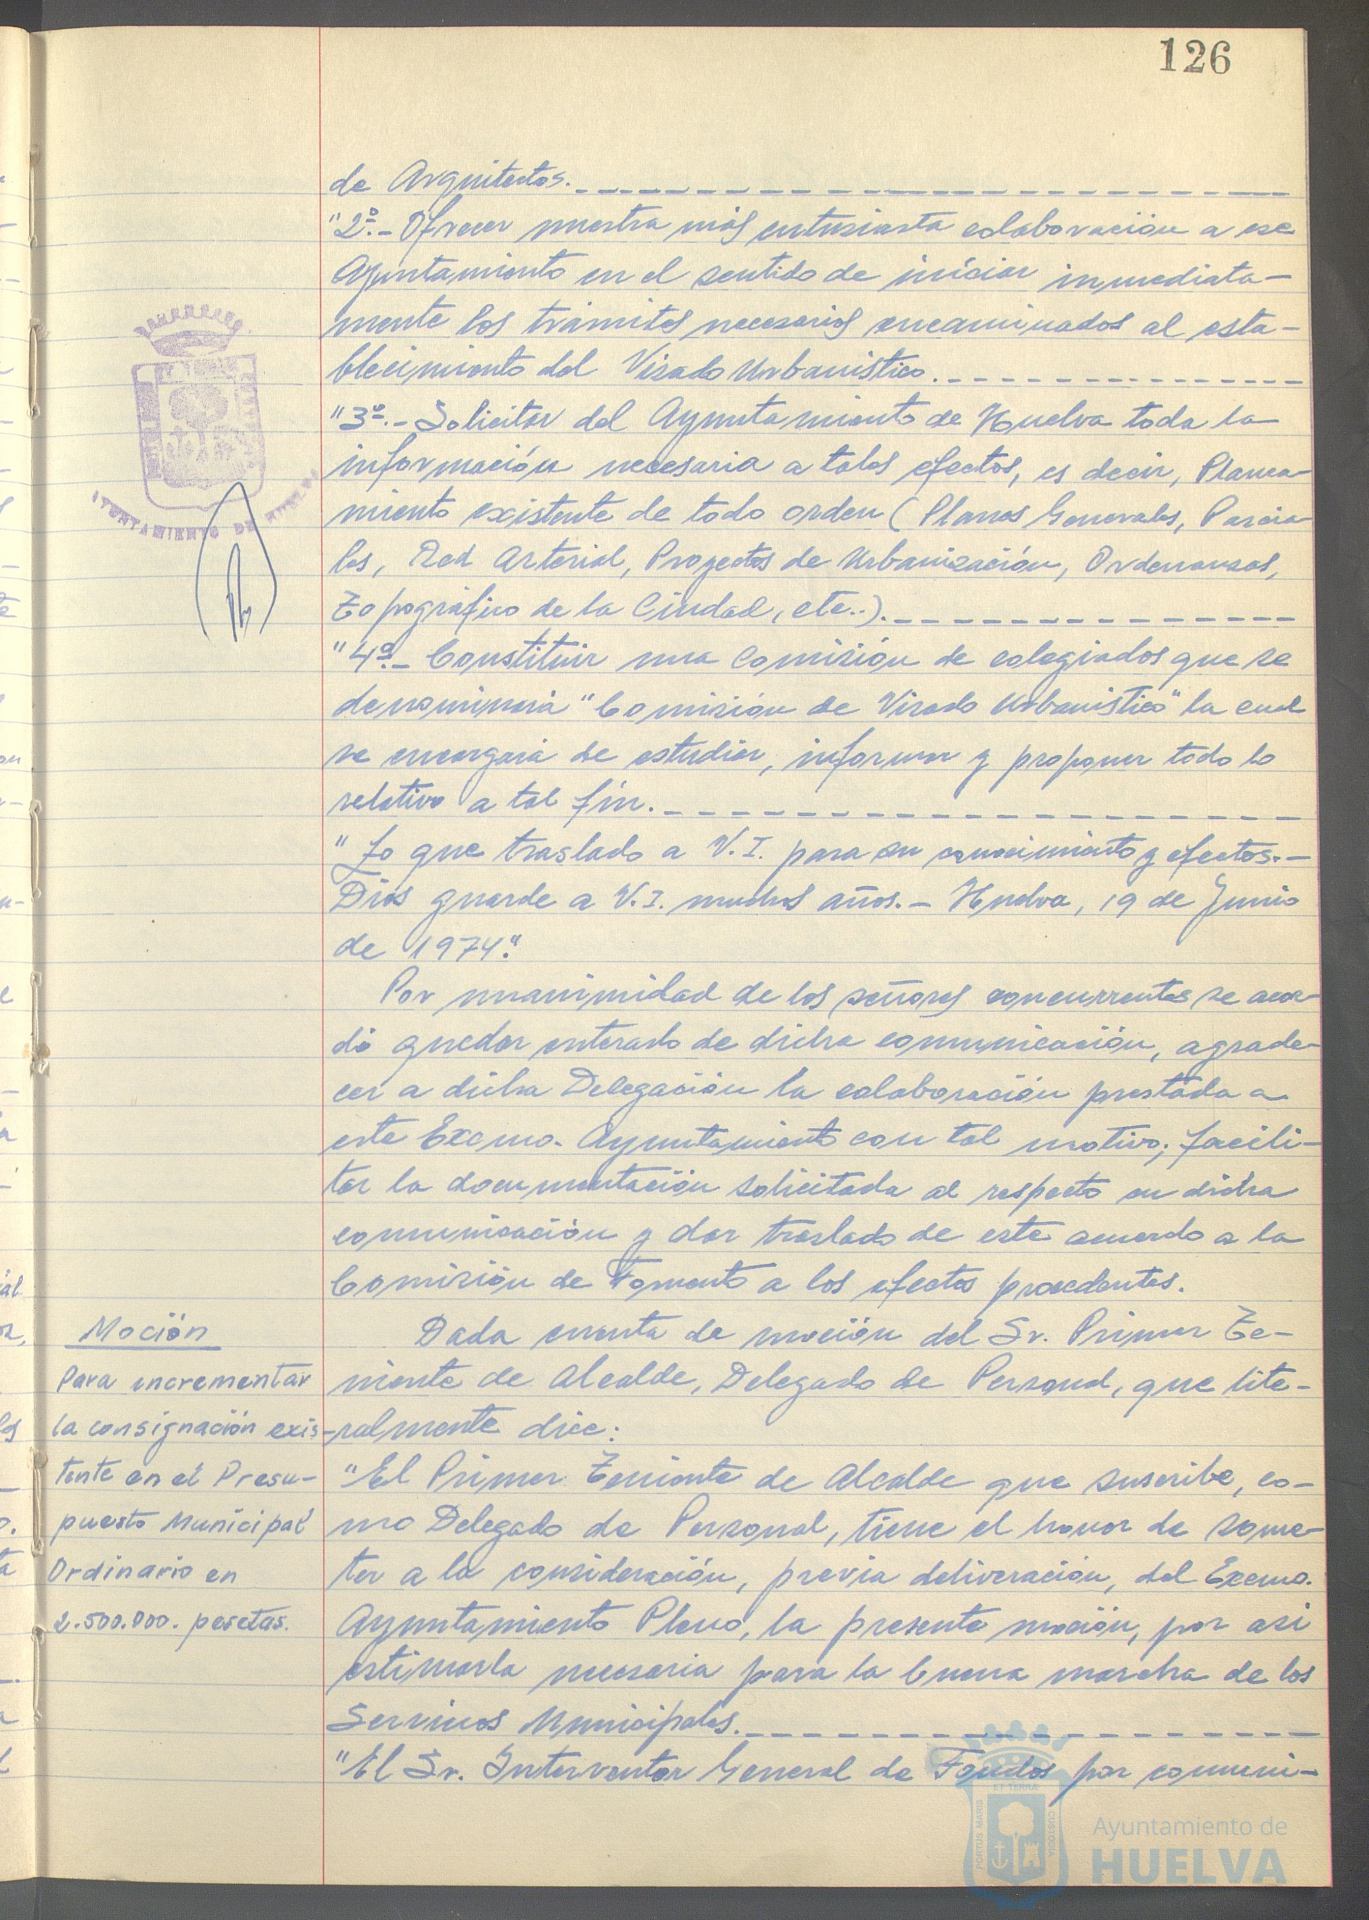 126
de Arquitectos.
"2º.- Ofrecer nuestra más entusiasta colaboración a ese
Ayuntamiento en el sentido de iniciar inmediata-
mente los trámites necesarios encaminados al esta-
blecimiento del Visado Urbanístico.
"3º.- Solicitar del Ayuntamiento de Huelva toda la
información necesaria a tales efectos, es decir, Planea-
miento existente de todo orden (Planes Generales, Parcia-
les, Red Arterial, Proyectos de Urbanización, Ordenanzas,
Topográfico de la Ciudad, etc..).
"4º.- Constituir una Comisión de colegiados que se
denominará "Comisión de Visado Urbanístico" la cual
se encargará de estudiar, informar y proponer todo lo
relativo a tal fin.
"Lo que traslado a V.I. para su conocimiento y efectos.-
Dios guarde a V.I. muchos años.- Huelva, 19 de Junio
de 1974."
Por unanimidad de los señores concurrentes se acor-
dó quedar enterado de dicha comunicación, agrade-
cer a dicha Delegación la colaboración prestada a
este Excmo. Ayuntamiento con tal motivo; facili-
tar la documentación solicitada al respecto en dicha
comunicación y dar traslado de este acuerdo a la
Comisión de Fomento a los efectos procedentes.
Moción
Para incrementar
la consignación exis-
tente en el Presu-
puesto Municipal
Ordinario en
2.500.000. pesetas.
Dada cuenta de moción del Sr. Primer Te-
niente de Alcalde, Delegado de Personal, que lite-
ralmente dice:
"El Primer Teniente de Alcalde que suscribe, co-
mo Delegado de Personal, tiene el honor de some-
ter a la consideración, previa deliveración, del Excmo.
Ayuntamiento Pleno, la presente moción, por así
estimarla necesaria para la buena marcha de los
Servicios Municipales.
"El Sr. Interventor General de Fondos por comuni-
AYUNTAMIENTO DE HUELVA
PORTUS MARIS
ET TERRAE
CUSTODIA
Ayuntamiento de
HUELVA